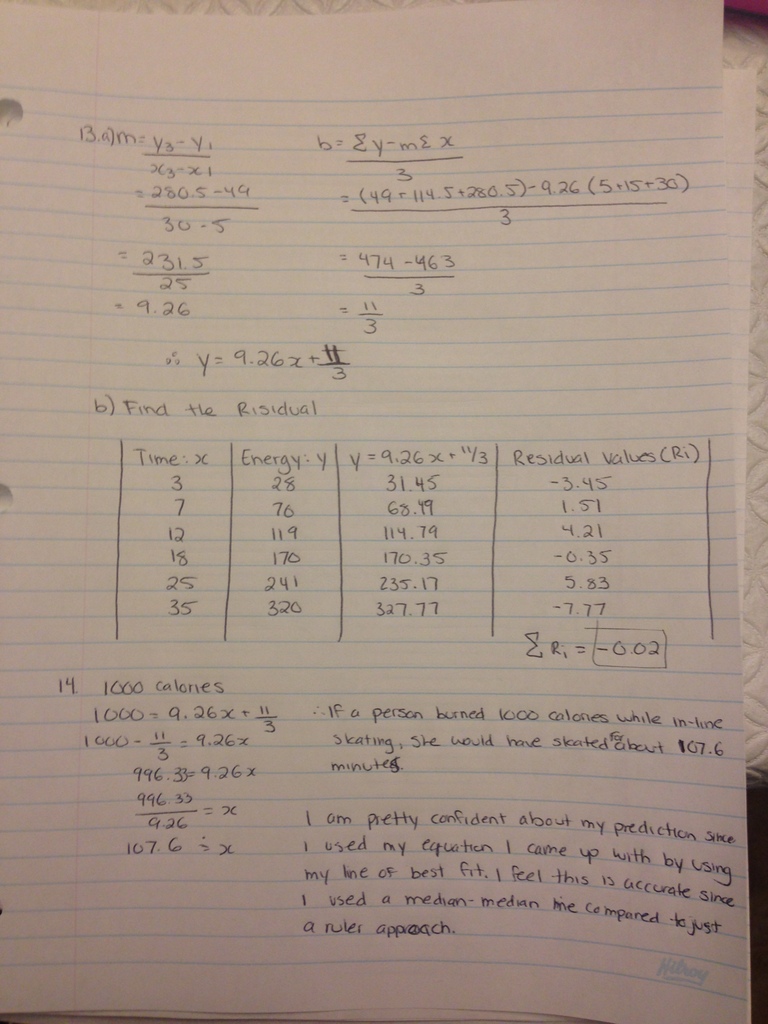 13.a) m = y3 - y1 / x3 - x1
= 280.5 - 49 / 30 - 5
= 231.5 / 25
= 9.26
b = Σy - mΣx / 3
= (49 + 114.5 + 280.5) - 9.26 (5+15+30) / 3
= 474 - 463 / 3
= 11 / 3
∴ y = 9.26x + 11/3
b) Find the Risidual
Time: x | Energy: y | y = 9.26x + 11/3 | Residual Values (Ri)
3 | 28 | 31.45 | -3.45
7 | 70 | 68.49 | 1.51
12 | 119 | 114.79 | 4.21
18 | 170 | 170.35 | -0.35
25 | 241 | 235.17 | 5.83
35 | 320 | 327.77 | -7.77
Σ Ri = -0.02
14. 1000 calories
1000 = 9.26x + 11/3
1000 - 11/3 = 9.26x
996.33 = 9.26x
996.33 / 9.26 = x
107.6 ≐ x
∴ If a person burned 1000 calories while in-line
skating, she would have skated for about 107.6
minutes.
I am pretty confident about my prediction since
I used my equation I came up with by using
my line of best fit. I feel this is accurate since
I used a median-median line compared to just
a ruler approach.
Hilroy